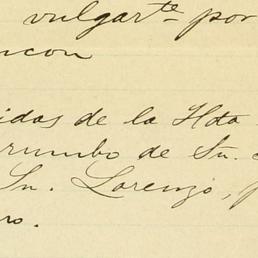 vulgarte por
ncon
idas de la Hda
rrumbo de Sn.
Sn. Lorenzo, p
ro.